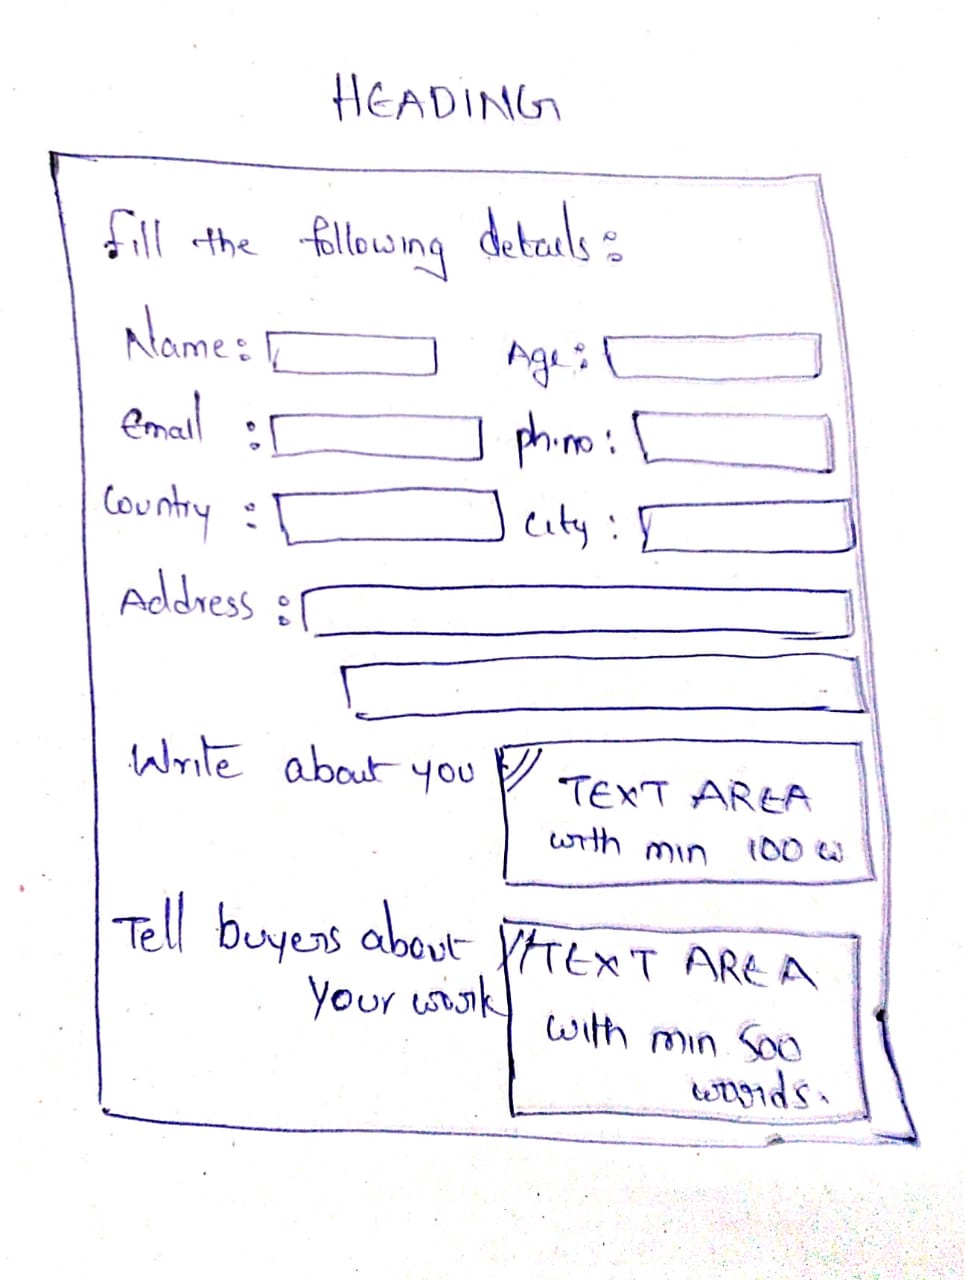 HEADING
Fill the following details:
Name: Age:
Email : ph.no:
Country : City :
Address :
Write about you TEXT AREA
with min 100 w
Tell buyers about TEXT AREA
your work with min 500
words.